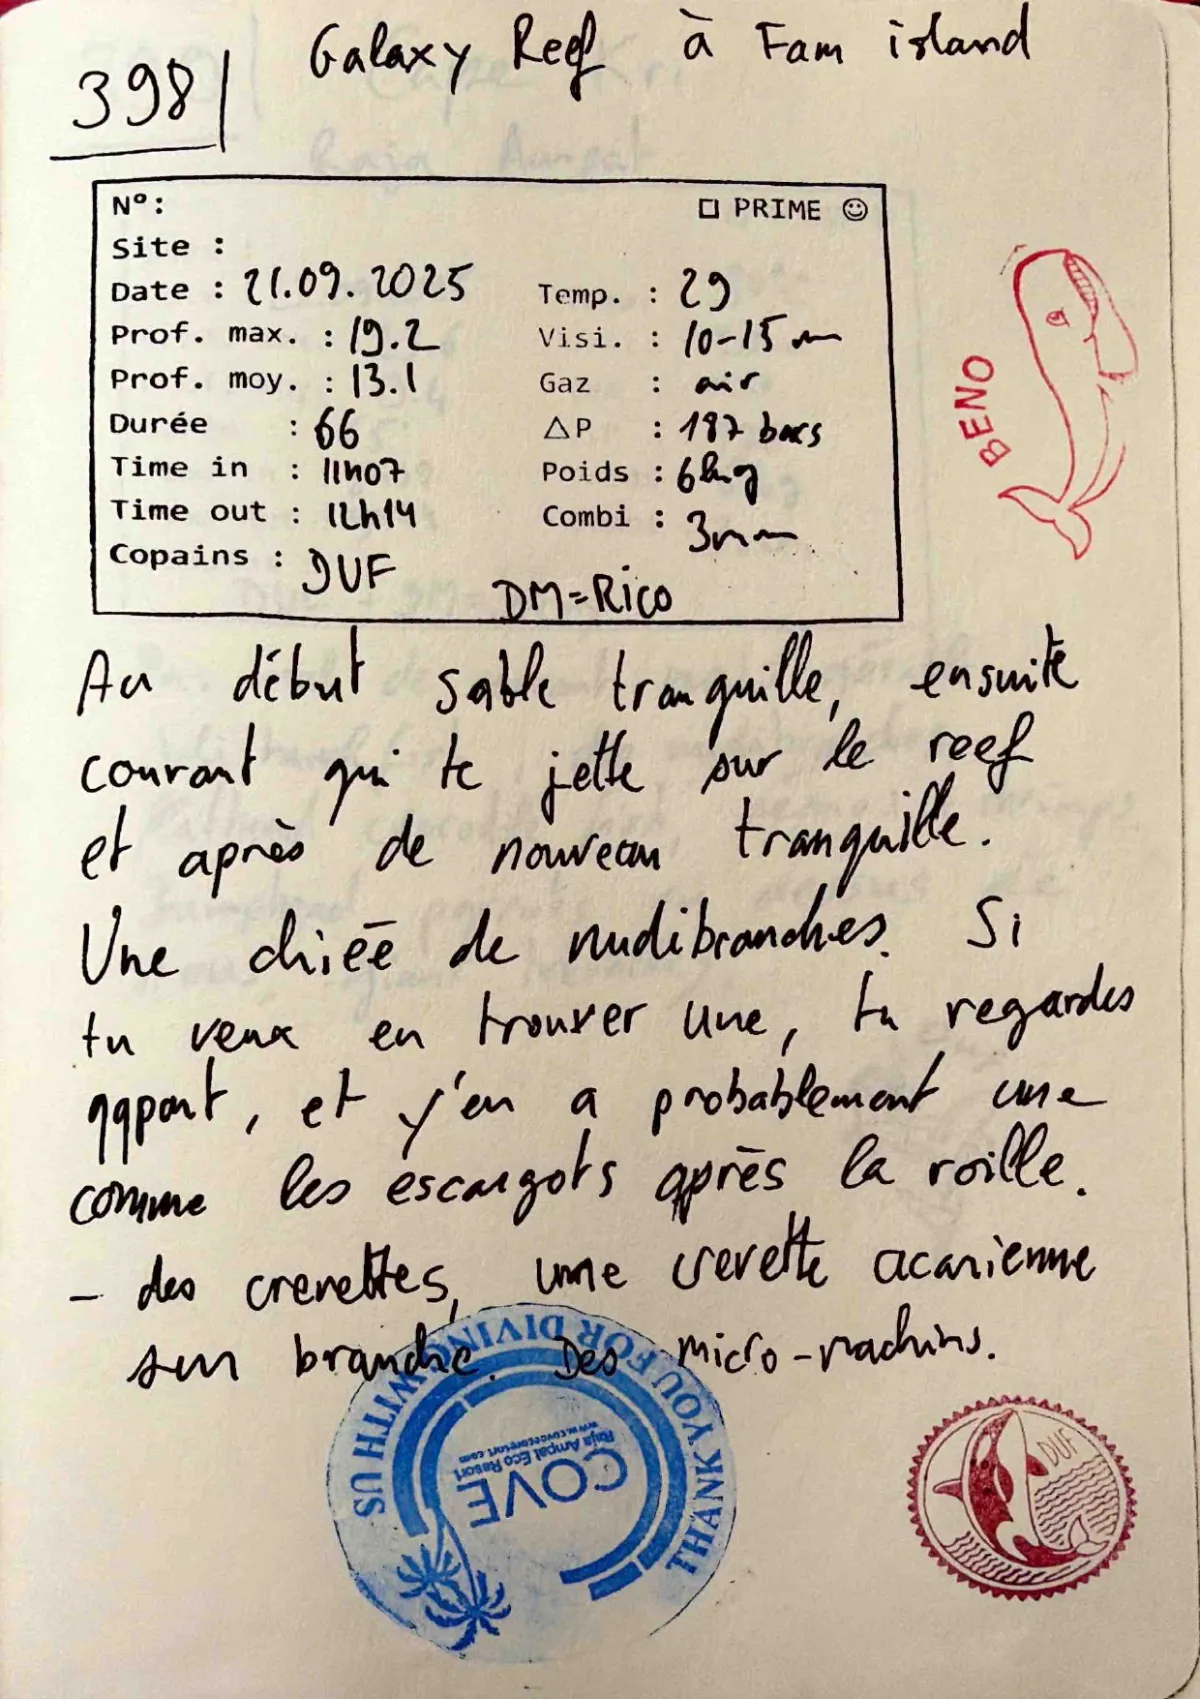 398
Galaxy Reef à Fam island
N° :
□ PRIME ☺
Site :
Date : 21.09.2025
Temp. : 29
Prof. max. : 19.2
Visi. : 10-15 m
Prof. moy. : 13.1
Gaz : air
Durée : 66
ΔP : 187 bars
Time in : 11h07
Poids : 6kg
Time out : 12h14
Combi : 3mm
Copains : DUF
DM=Rico
BENO
Au début sable tranquille, ensuite
courant qui te jette sur le reef
et après de nouveau tranquille.
Une chiée de nudibranches. Si
tu veux en trouver une, tu regardes
qqpart, et y'en a probablement une
comme les escargots après la roille.
- des crevettes, une crevette acarienne
sur branche. Des micro-machins.
THANK YOU FOR DIVING WITH US
COVE
Raja Ampat Eco Resort
www.coveecoresort.com
DUF